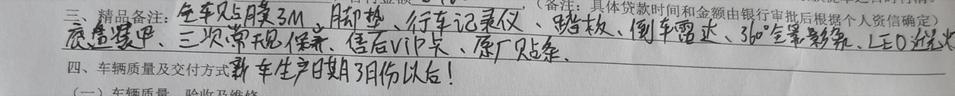 （备注：具体贷款时间和金额由银行审批后根据个人资信确定）
三、精品备注：全车贴膜3M、脚垫、行车记录仪、踏板、倒车雷达、360°全景影像、LED近光灯
底盘装甲、三次常规保养、售后VIP卡、原厂贴条.
四、车辆质量及交付方式 新车生产日期3月份以后！
（一）车辆质量、验收及维修